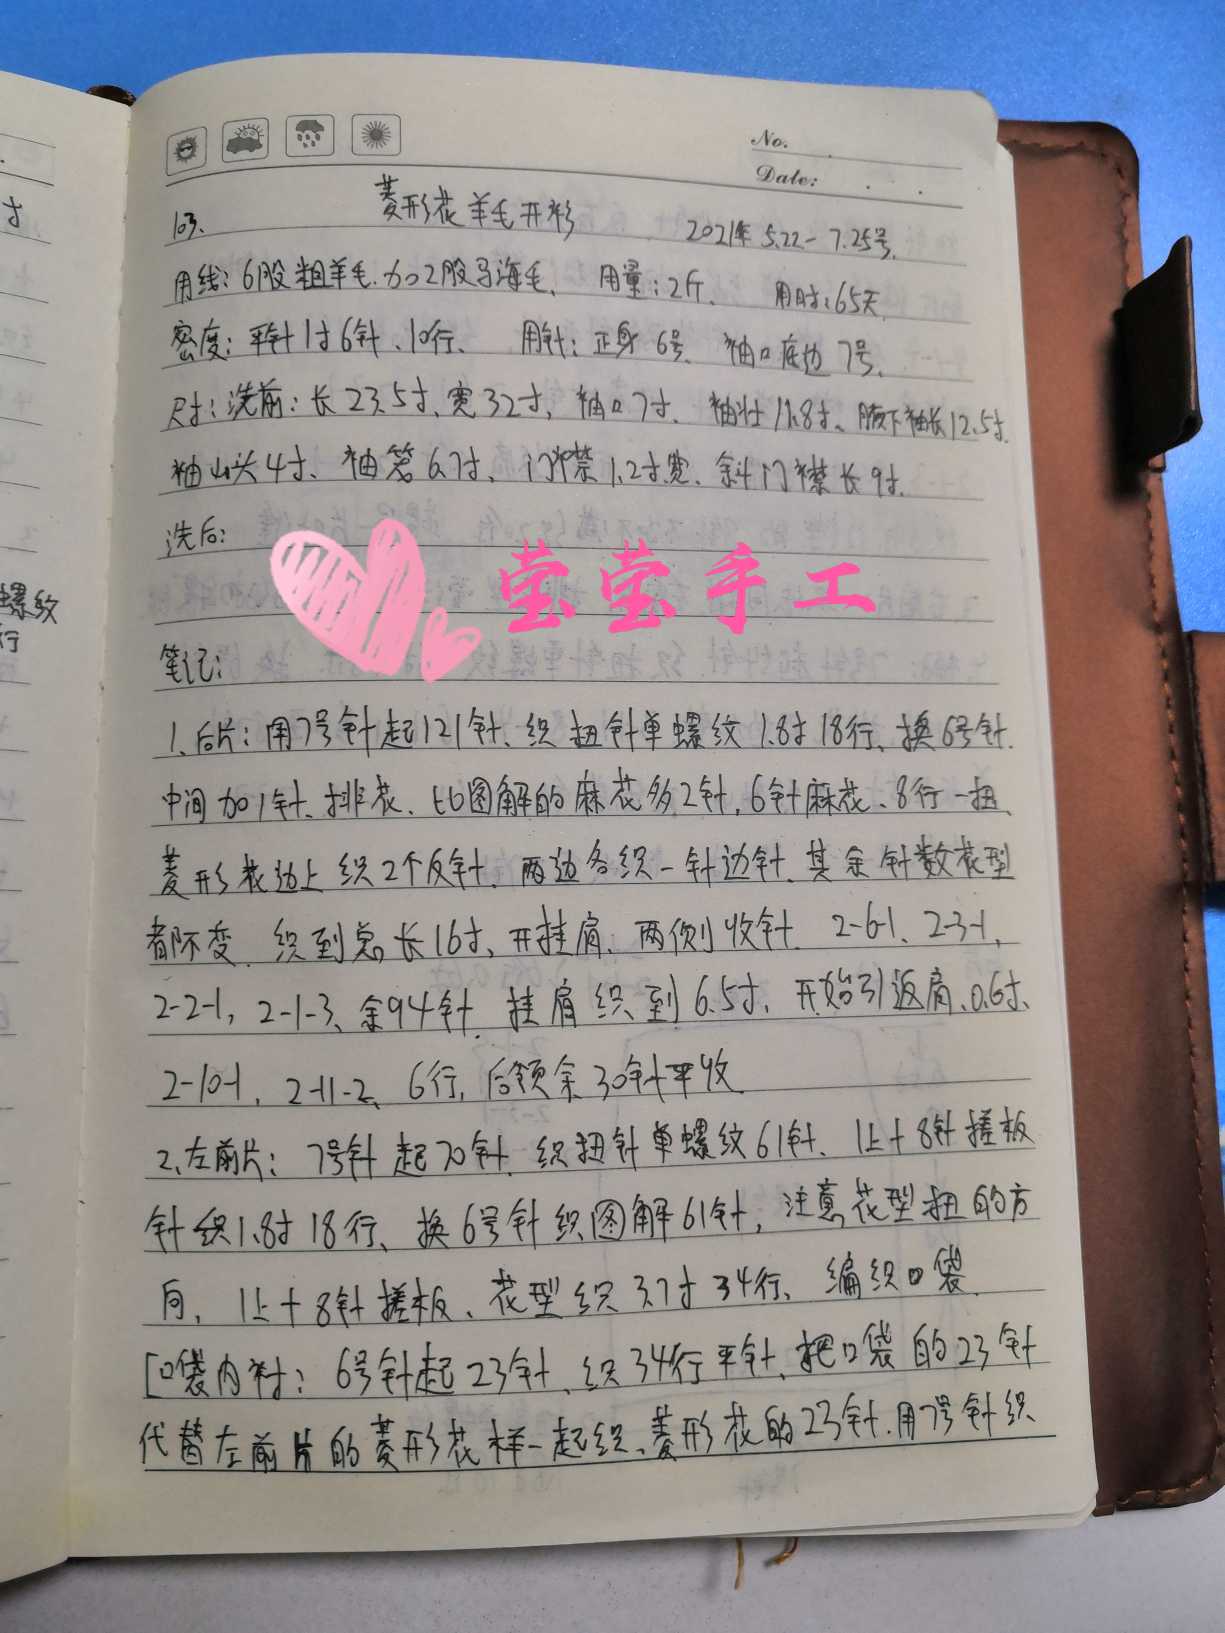 No.
Date:
103. 菱形花羊毛开衫 2021年 5.22-7.25号.
用线:6股粗羊毛.加2股马海毛、 用量:2斤. 用时:65天.
密度:平针1寸6针、10行、 用针:正身6号. 袖口底边7号.
尺寸:洗前:长23.5寸、宽32寸, 袖口7寸. 袖壮11.8寸、腋下袖长12.5寸.
袖山头4寸、袖笼6.7寸、门襟1.2寸宽、斜门襟长9寸.
洗后:
莹莹手工
笔记:
1、后片:用7号针起121针、织扭针单螺纹1.8寸18行、换6号针.
中间加1针、排花、比图解的麻花多2针,6针麻花、8行一扭、
菱形花边上织2个反针、两边各织一针边针、其余针数花型
都不变、织到总长16寸、开挂肩、两侧收针、2-6-1、2-3-1,
2-2-1, 2-1-3、余94针、挂肩织到6.5寸, 开始引返肩、0.6寸、
2-10-1, 2-11-2、6行, 后领余30针平收.
2、左前片: 7号针起70针、织扭针单螺纹61针、1上+8针搓板
针织1.8寸18行、换6号针织图解61针, 注意花型扭的方
向, 1上+8针搓板、花型织3.7寸34行、编织口袋.
[口袋内衬: 6号针起23针、织34行平针、把口袋的23针
代替左前片的菱形花样一起织、菱形花的23针.用7号针织
寸
螺纹
行